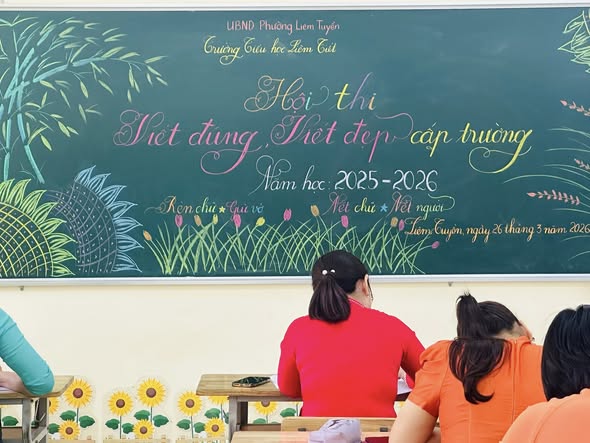 UBND Phường Liêm Tuyền
Trường Tiểu học Liêm Tiết
Hội thi
Viết đúng, Viết đẹp cấp trường
Năm học: 2025-2026
Rèn chữ ★ Giữ vở Nét chữ ★ Nết người
Liêm Tuyền, ngày 26 tháng 3 năm 2026